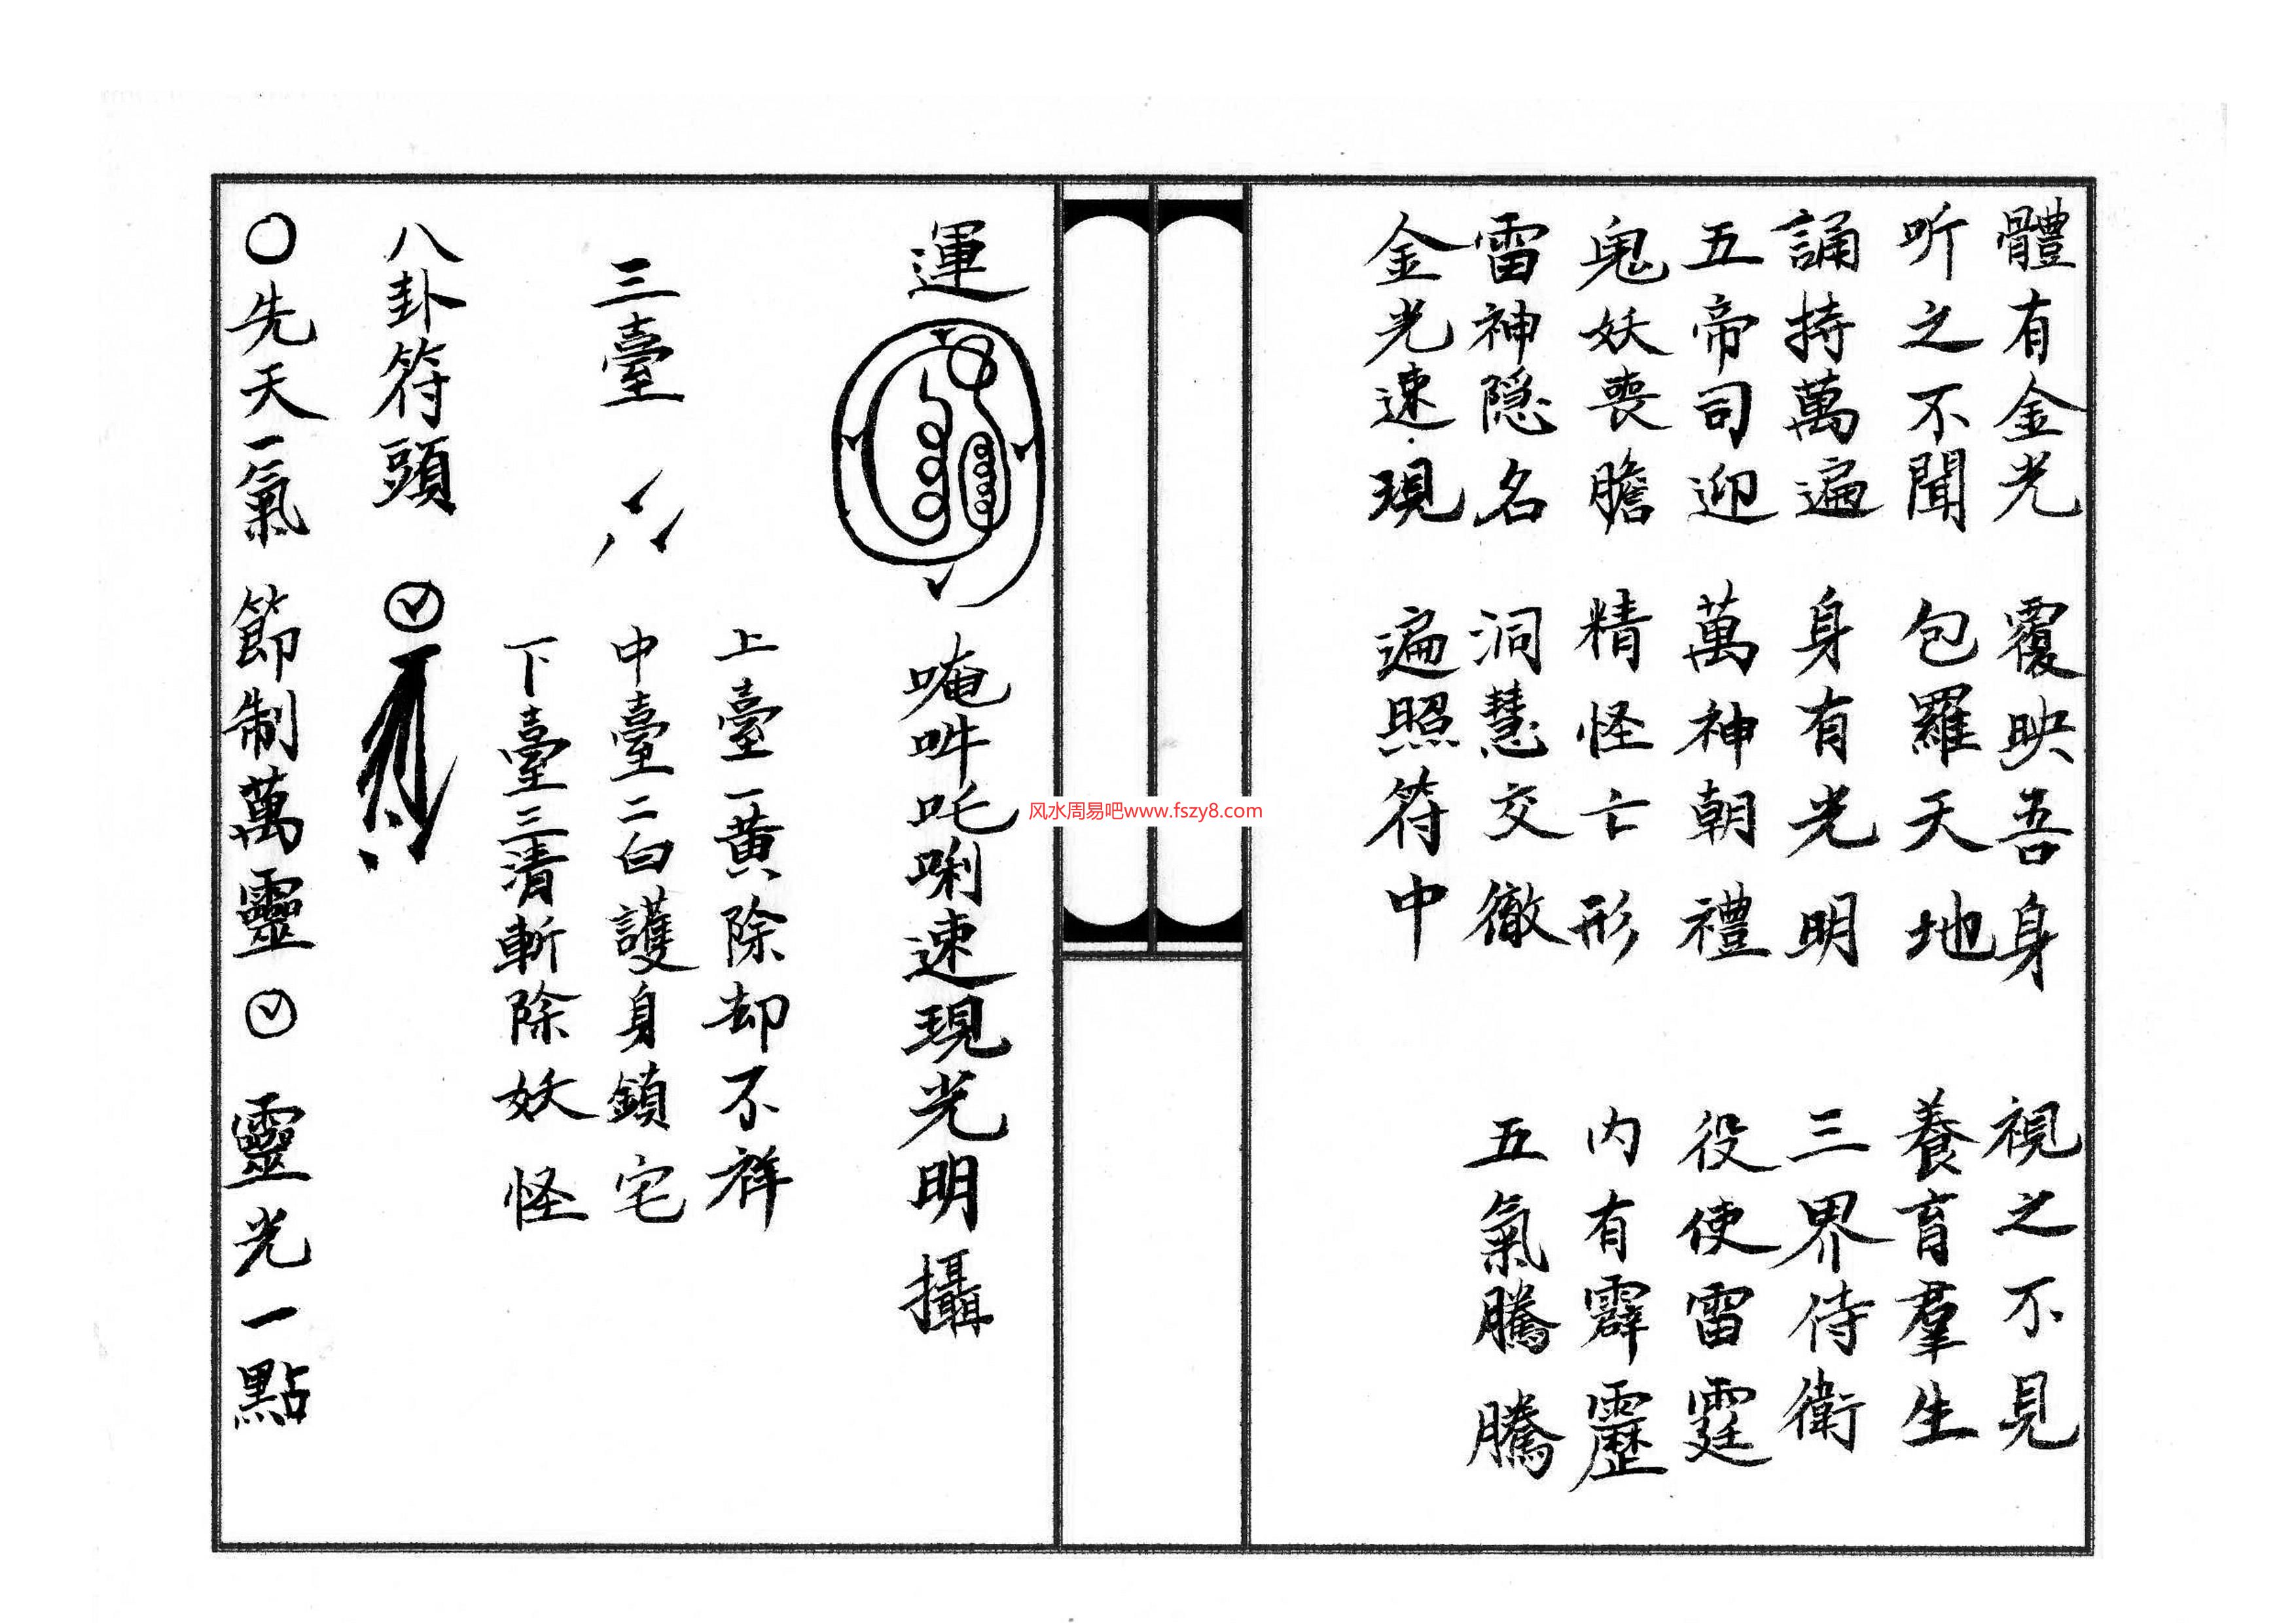 體有金光 覆映吾身 視之不見
听之不聞 包羅天地 養育羣生
誦持萬遍 身有光明 三界侍衛
五帝司迎 萬神朝禮 役使雷霆
鬼妖喪膽 精怪亡形 内有霹靂
雷神隐名 洞慧交徹 五氣騰騰
金光速現 遍照符中
運 唵吽吒唎速現光明攝
上臺一黄除却不祥
三臺 中臺二白護身鎮宅
下臺三清斬除妖怪
八卦符頭
〇先天一氣 節制萬靈 靈光一點
风水周易吧www.fszy8.com